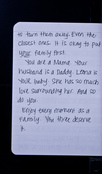 to turn them away. Even the
closest ones. It is okay to put
your family first.
You are a Mama. Your
husband is a Daddy. Leana is
your baby. She has so much
love surrounding her. And so
do you.
Enjoy every moment as a
family. You three deserve
it.